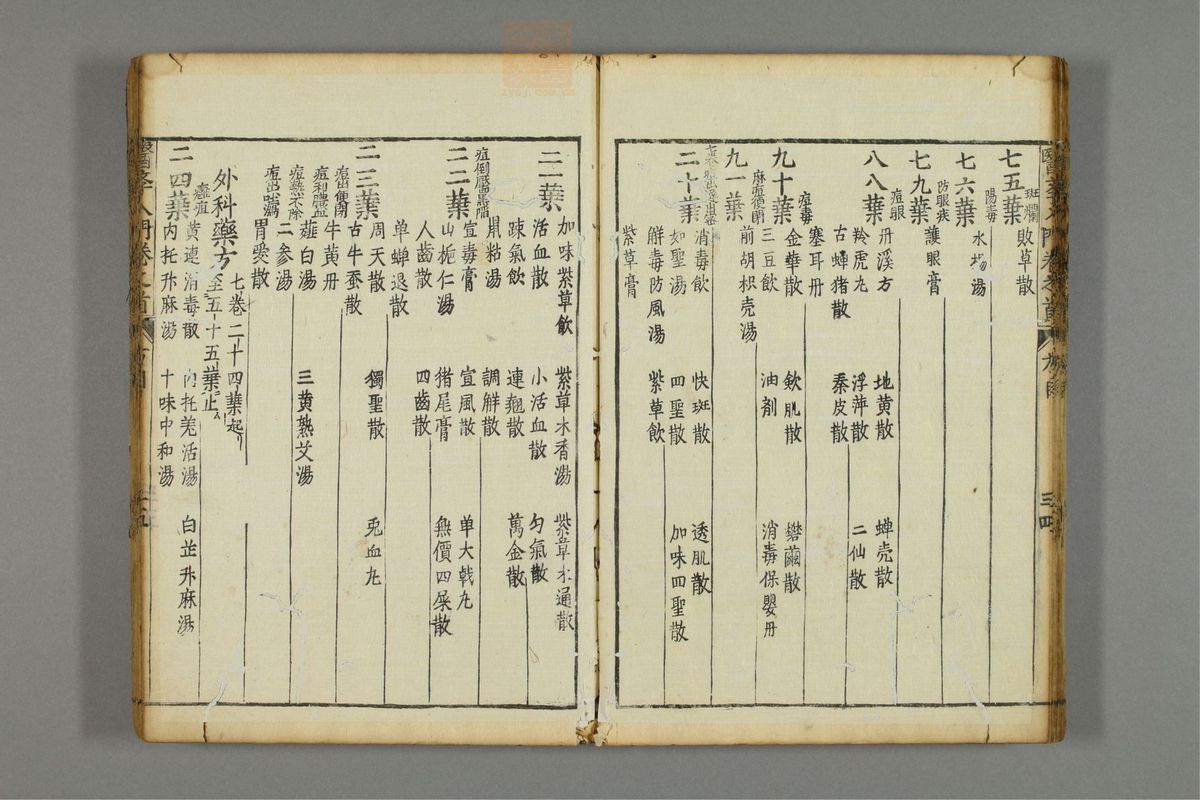 七五葉
斑爛 敗草散
七六葉
陽毒 水楊湯
七九葉
防眼疾 護眼膏
八八葉
痘眼 丹溪方 地黄散 蟬壳散
羚虎丸 浮萍散 二仙散
古蟬猪散 秦皮散
九十葉
痘毒 塞耳丹
金華散 欽肌散 礬繭散
三豆飲 油剤 消毒保嬰丹
九一葉
前胡枳壳湯
二十葉
消毒飲 快斑散 透肌散
如聖湯 四聖散 加味四聖散
觧毒防風湯 紫草飲
紫草膏
二一葉
加味紫草飲 紫草木香湯 紫草木通散
活血散 小活血散 匀氣散
踈氣飲 連翹散 萬金散
鼠粘湯 調觧散
二二葉
痘倒靨黑陷
宣毒膏 宣風散 单大戟丸
山梔仁湯 猪尾膏 無價四屎散
人齒散 四齒散
单蟬退散
二三葉
周天散 獨聖散 兎血丸
古牛蚕散
牛黄丹
薤白湯 三黄熟艾湯
二参湯
胃愛散
外科藥方 七卷二十四葉起
至五十五葉止
二四葉
癰疽 黄連消毒散 内托羗活湯 白芷升麻湯
内托升麻湯 十味中和湯